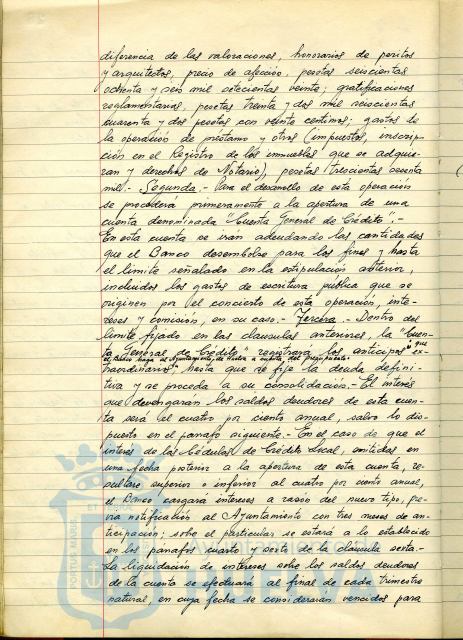 diferencia de las valoraciones, honorarios de peritos
y arquitectos, precio de afección, pesetas seiscientas
ochenta y seis mil setecientas veinte; gratificaciones
reglamentarias, pesetas treinta y dos mil ochocientas
cuarenta y dos pesetas con veinte centimos; gastos de
la operación de préstamo y otros (impuestos, inscrip-
ción en el Registro de los inmuebles que se adquie-
ran y derechos de Notario), pesetas trescientas sesenta
mil.- Segunda.- Para el desarrollo de esta operación
se procederá primeramente a la apertura de una
cuenta denominada "Cuenta General de Crédito".-
En esta cuenta se iran adeudando las cantidades
que el Banco desembolse para los fines y hasta
el limite señalado en la estipulación anterior,
incluidos los gastos de escritura publica que se
originen por el concierto de esta operación, inte-
reses y comisión, en su caso.- Tercera.- Dentro del
limite fijado en las clausulas anteriores, la "Cuen-
ta General de Crédito" registrará los anticipos que
el Banco haga al Ayuntamiento, de Renta a cuenta, del presupuesto ex-
traordinario" hasta que se fije la deuda defini-
tiva y se proceda a su consolidación.- El interés
que devengarán los saldos deudores de esta cuen-
ta será el cuatro por ciento anual, salvo lo dis-
puesto en el parrafo siguiente.- En el caso de que el
interes de las Cédulas de Crédito Local, emitidas en
una fecha posterior a la apertura de esta cuenta, re-
sultare superior o inferior al cuatro por ciento anual,
el Banco cargará intereses a razón del nuevo tipo, pre-
via notificación al Ayuntamiento con tres meses de an-
ticipación; sobre el particular se estará a lo establecido
en los parrafos cuarto y sexto de la clausula sexta.-
La liquidación de intereses sobre los saldos deudores
de la cuenta se efectuará al final de cada trimestre
natural, en cuya fecha se considerarán vencidos para